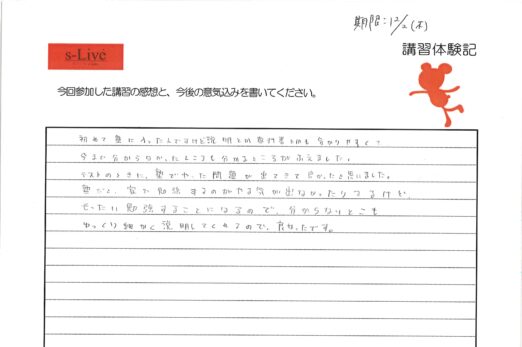 期限:12/2(木)
s-Live
講習体験記
今回参加した講習の感想と、今後の意気込みを書いてください。
初めて塾に入ったんですけど説明とか教科書よりも分かりやすくて
今まで分からなかったところも分かるところがふえました。
テストのときに、塾でやった問題が出てきて良かったと思いました。
塾だと、家で勉強するのがやる気が出なかったりするけど、
ぜったい勉強することになるので、分からないとこも
ゆっくり細かく説明してくれるので、良かったです。